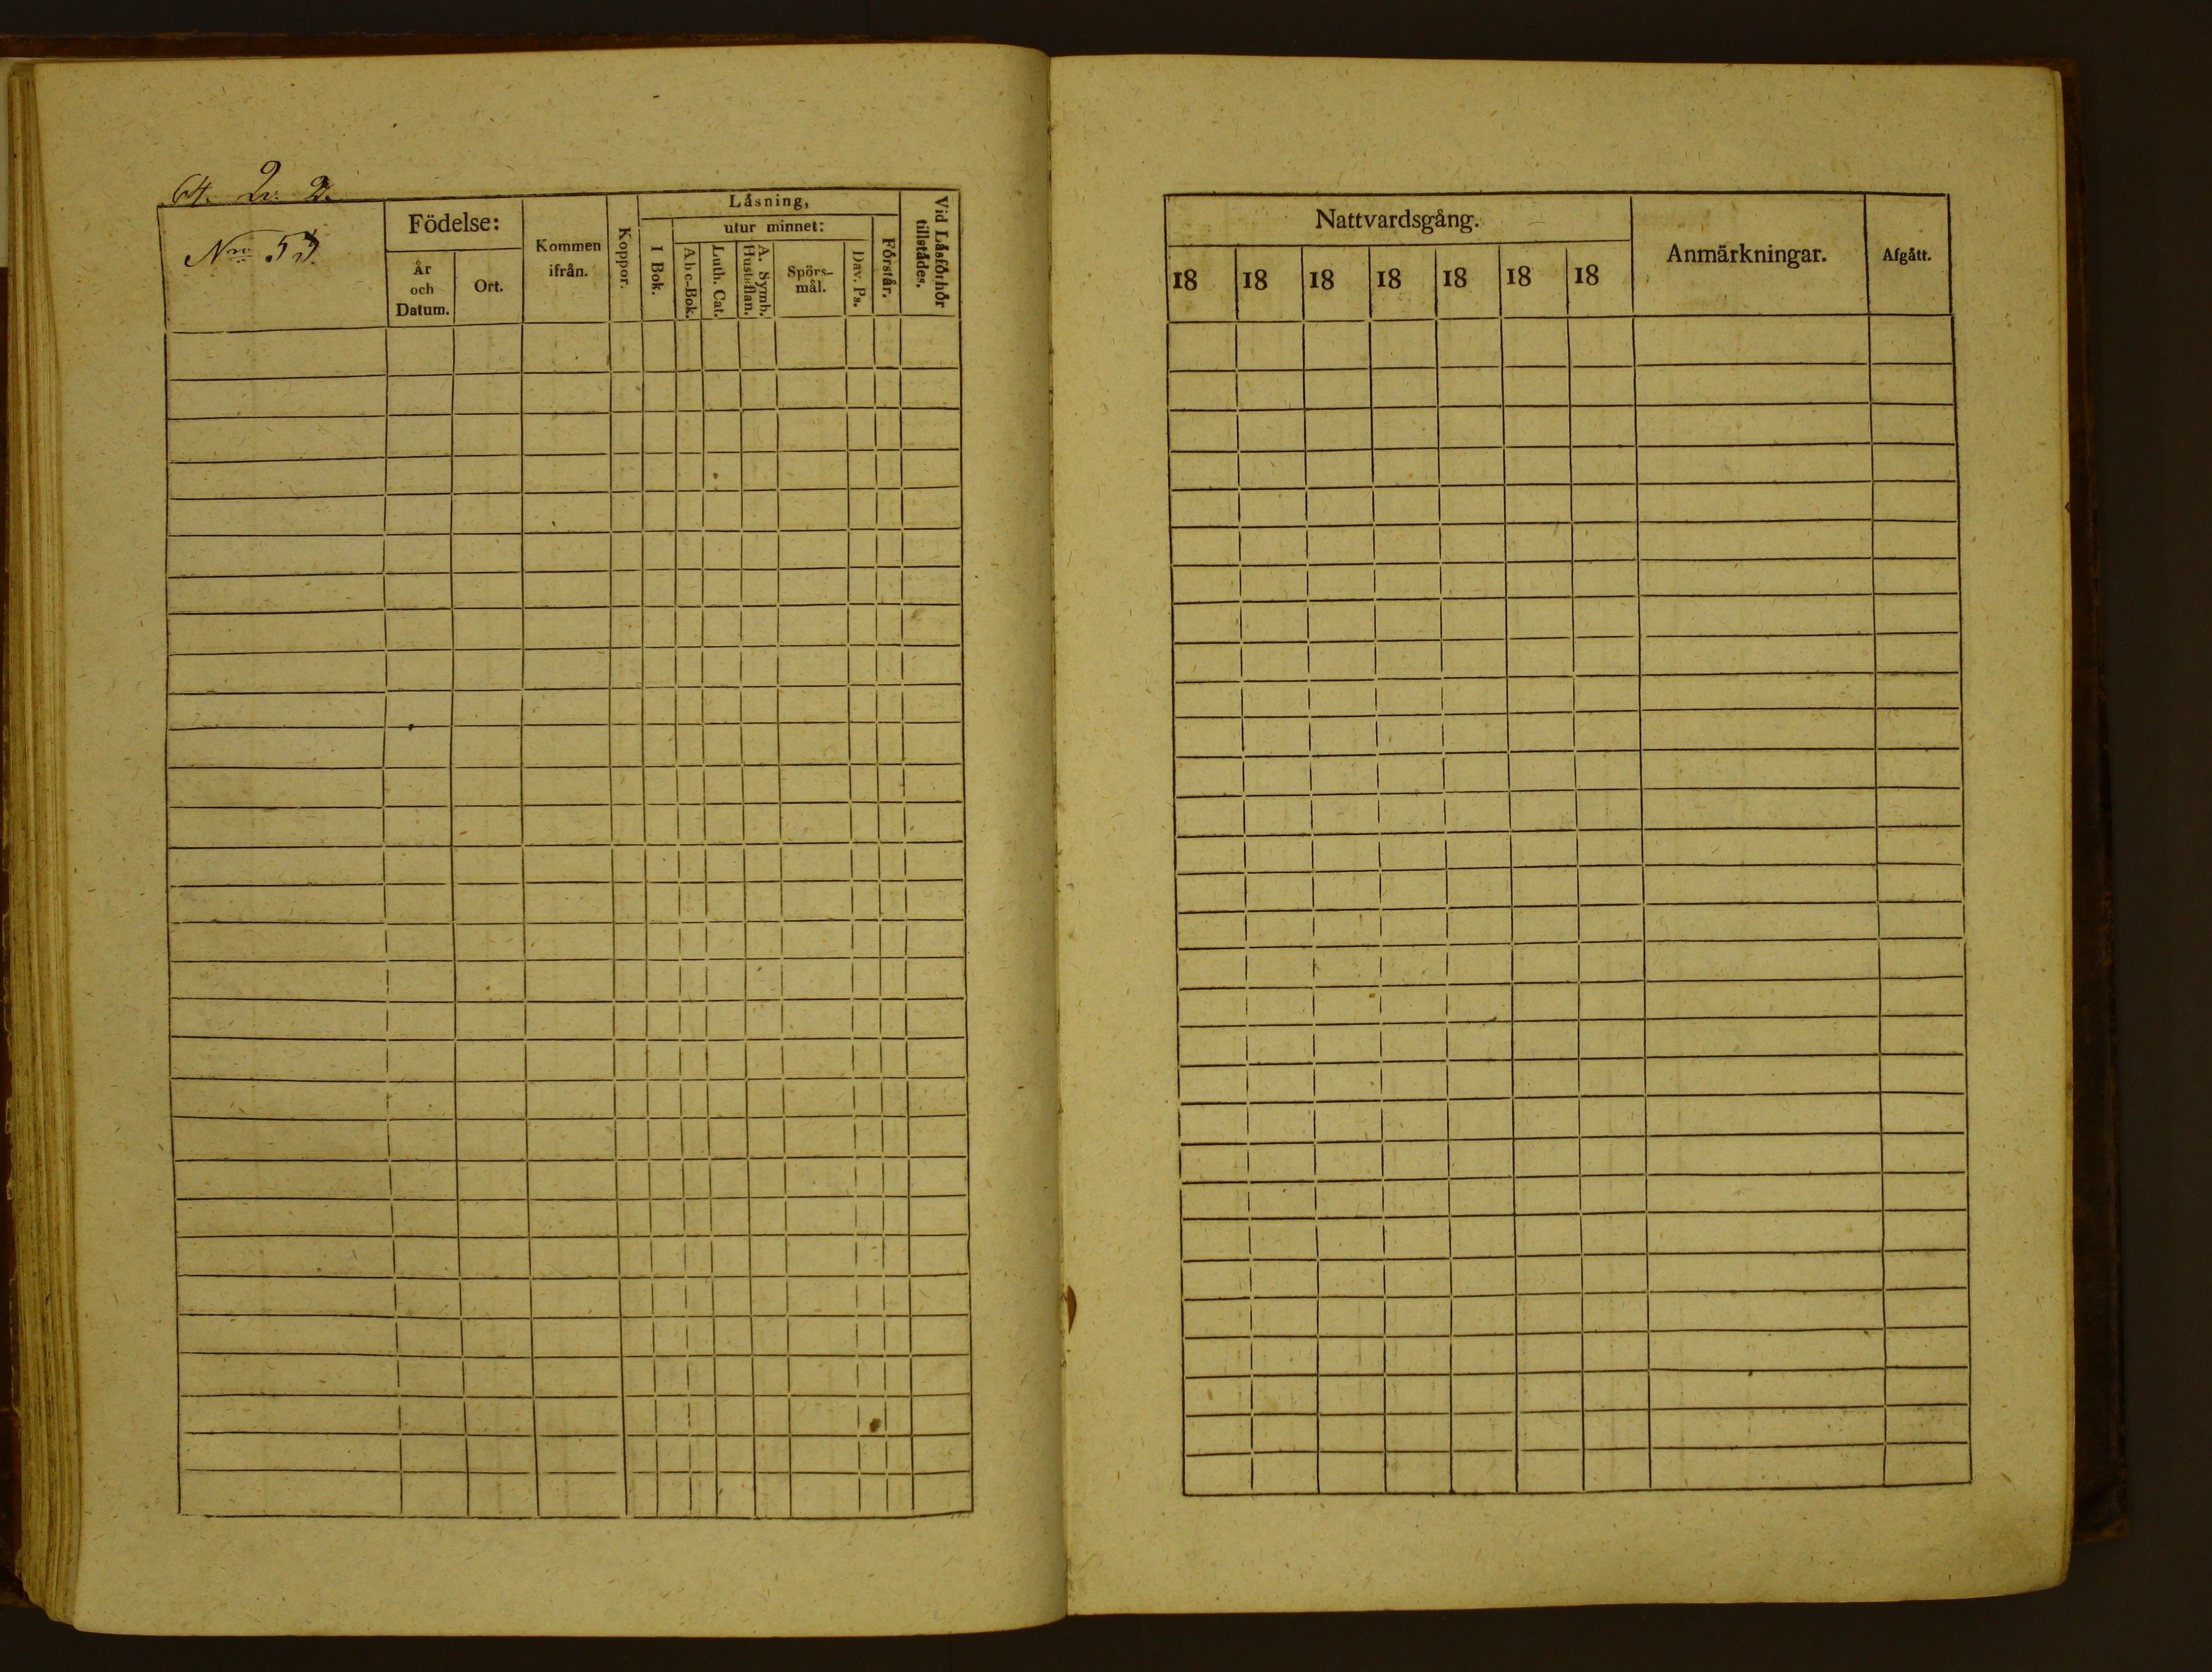 64. Qv. 2.
Nro 53.
Födelse:
År
och
Datum.
Ort.
Kommen
ifrån.
Koppor.
Låsning,
utur minnet:
I Bok.
Abc-Bok.
Luth. Cat.
A. Symb.
Hustaflan.
Spörs-
mål.
Dav. Ps.
Förstår.
Vid Låsförhör
tillstådes.
Nattvardsgång.
18 18 18 18 18 18 18
Anmärkningar.
Afgått.